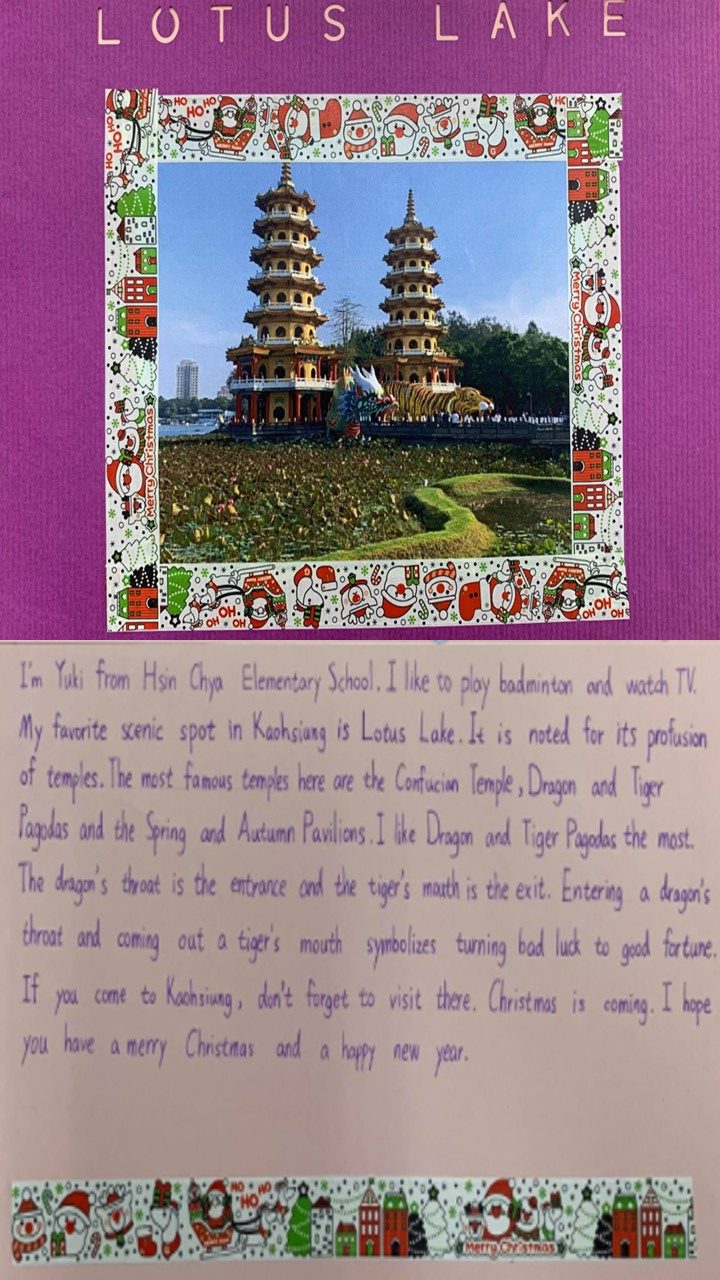 LOTUS LAKE
HO HO HO
HO
HO HO
Merry Christmas
Merry Christmas
HO HO
HO HO
I'm Yuki from Hsin Chya Elementary School. I like to play badminton and watch TV.
My favorite scenic spot in Kaohsiung is Lotus Lake. It is noted for its profusion
of temples. The most famous temples here are the Confucian Temple, Dragon and Tiger
Pagodas and the Spring and Autumn Pavilions. I like Dragon and Tiger Pagodas the most.
The dragon's throat is the entrance and the tiger's mouth is the exit. Entering a dragon's
throat and coming out a tiger's mouth symbolizes turning bad luck to good fortune.
If you come to Kaohsiung, don't forget to visit there. Christmas is coming. I hope
you have a merry Christmas and a happy new year.
HO HO HO
Merry Christmas